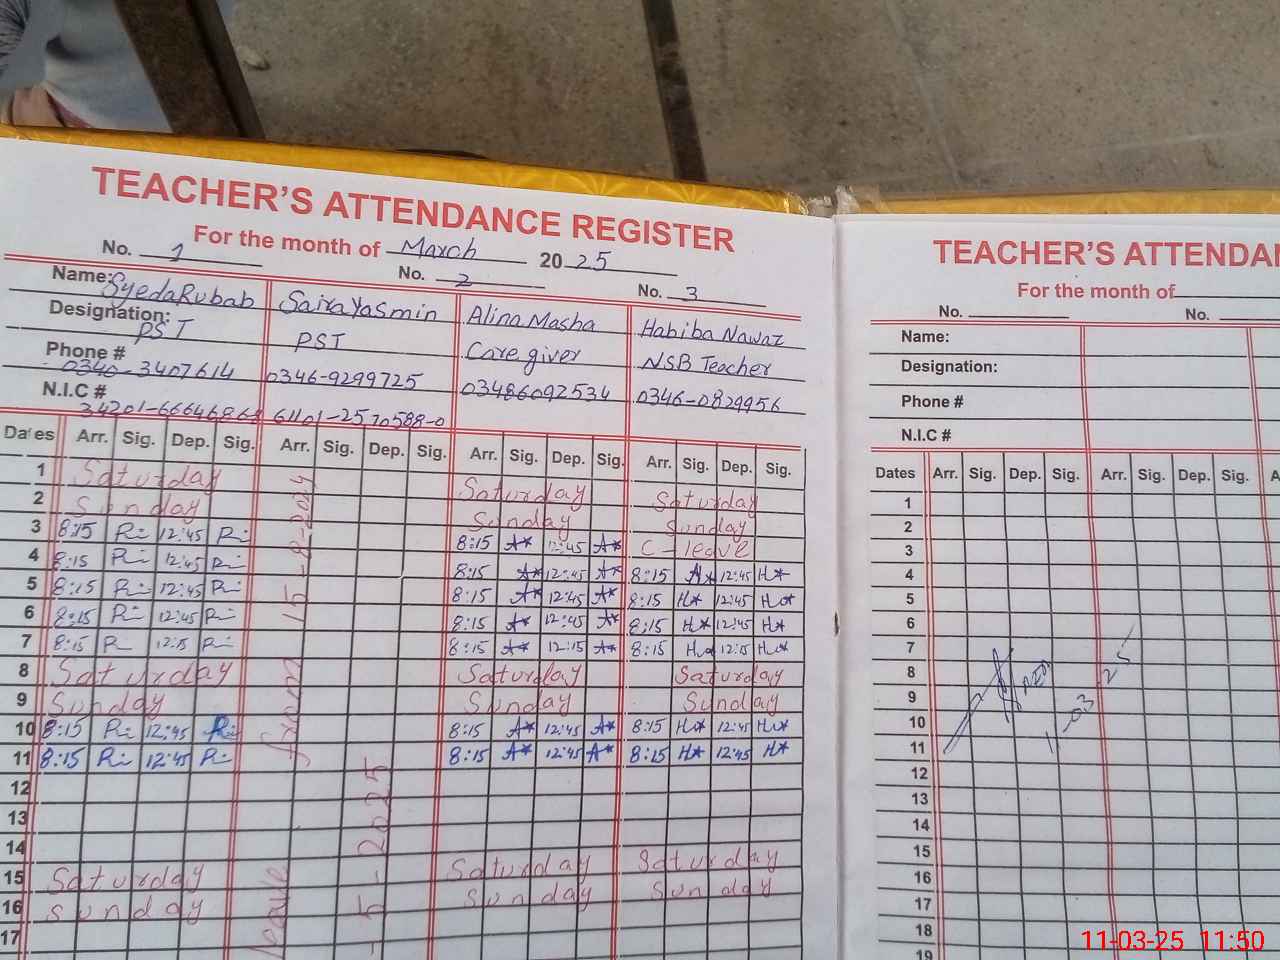 TEACHER'S ATTENDANCE REGISTER
For the month of March 2025
No. 1 No. 2 No. 3
Name: Syeda Rubab Saira Yasmin Alina Masha Habiba Nawaz
Designation: PST PST Care giver NSB Teacher
Phone # 0340-3407614 0346-9299725 03486092534 0346-0829956
N.I.C # 61101-2570588-0
Dates Arr. Sig. Dep. Sig. Arr. Sig. Dep. Sig. Arr. Sig. Dep. Sig. Arr. Sig. Dep. Sig.
1 Saturday Saturday Saturday
2 Sunday Sunday Sunday
3 8:15 12:45 8:15 12:45 C-leave
4 8:15 12:45 8:15 12:45 8:15 12:45
5 8:15 12:45 8:15 12:45 8:15 12:45
6 8:15 12:45 8:15 12:45 8:15 12:45
7 8:15 12:15 8:15 12:15 8:15 12:15
8 Saturday Saturday Saturday
9 Sunday Sunday Sunday
10 8:15 12:45 8:15 12:45 8:15 12:45
11 8:15 12:45 8:15 12:45 8:15 12:45
12
13
14
15 Saturday Saturday Saturday
16 Sunday Sunday Sunday
17
leave from 15-8-2024
-5-2025
TEACHER'S ATTENDAN
For the month of
No. No.
Name:
Designation:
Phone #
N.I.C #
Dates Arr. Sig. Dep. Sig. Arr. Sig. Dep. Sig. A
1
2
3
4
5
6
7
8
9
10
11
12
13
14
15
16
17
18
19
11-03-25 11:50